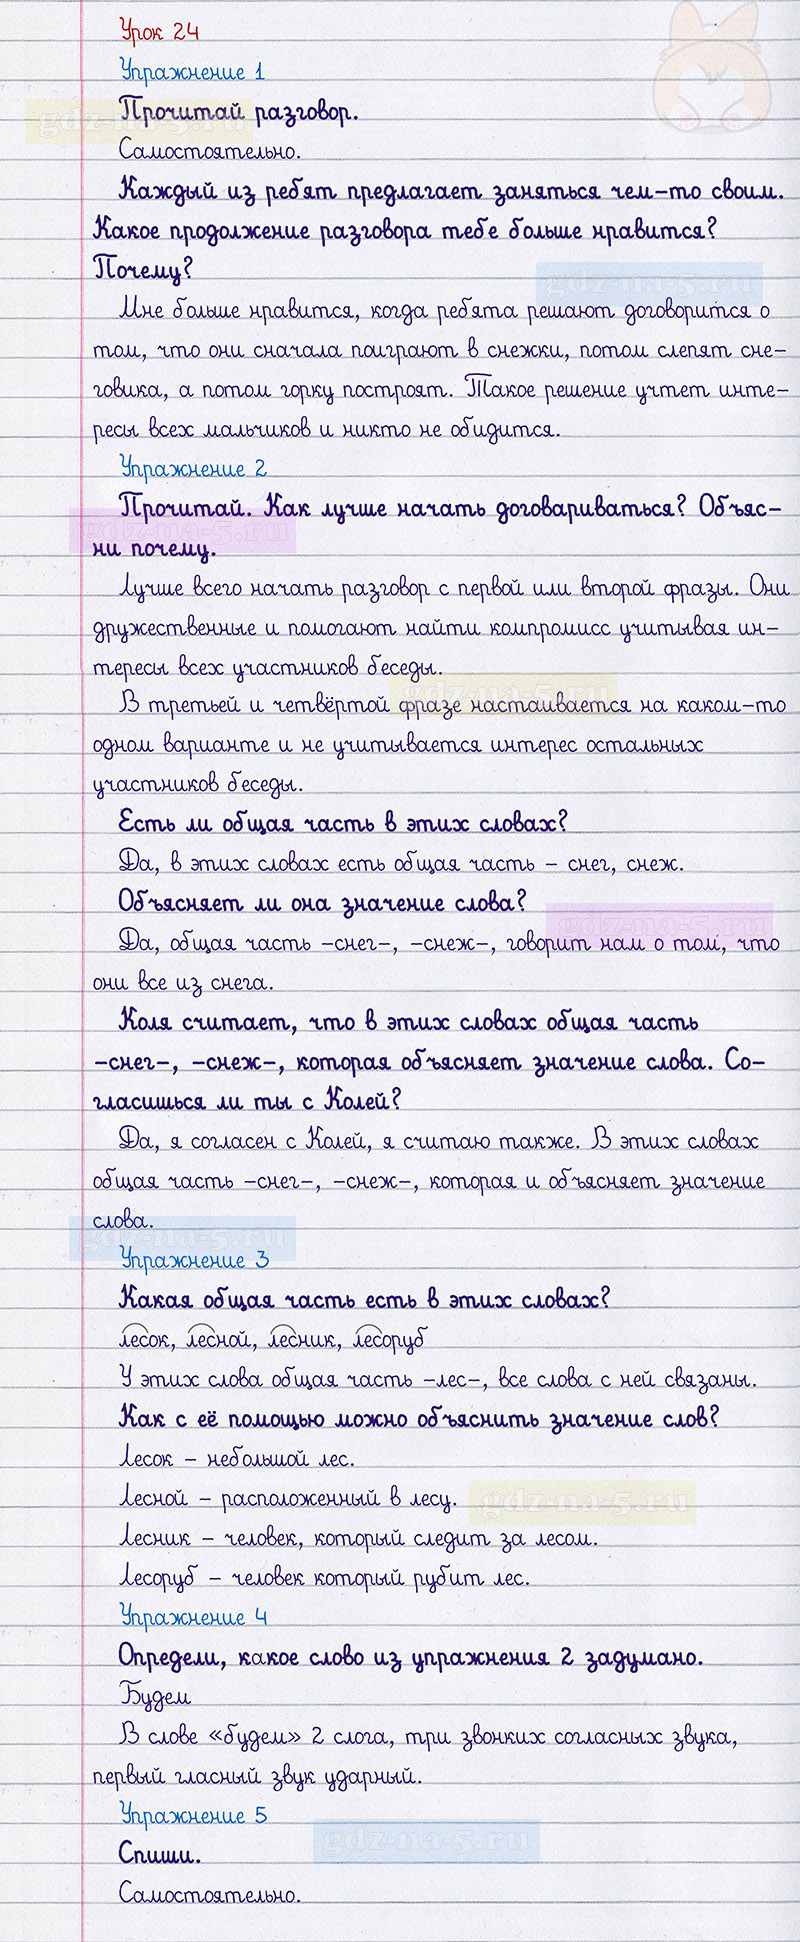 Урок 24
Упражнение 1
Прочитай разговор.
gdz-na-5.ru
Самостоятельно.
Каждый из ребят предлагает заняться чем-то своим.
Какое продолжение разговора тебе больше нравится?
Почему?
gdz-na-5.ru
Мне больше нравится, когда ребята решают договорится о
том, что они сначала поиграют в снежки, потом слепят сне-
говика, а потом горку построят. Такое решение учтет инте-
ресы всех мальчиков и никто не обидится.
Упражнение 2
Прочитай. Как лучше начать договариваться? Объяс-
gdz-na-5.ru
ни почему.
Лучше всего начать разговор с первой или второй фразы. Они
дружественные и помогают найти компромисс учитывая ин-
тересы всех участников беседы.
gdz-na-5.ru
В третьей и четвёртой фразе настаивается на каком-то
одном варианте и не учитывается интерес остальных
участников беседы.
Есть ли общая часть в этих словах?
Да, в этих словах есть общая часть – снег, снеж.
Объясняет ли она значение слова?
gdz-na-5.ru
Да, общая часть –снег–, –снеж–, говорит нам о том, что
они все из снега.
Коля считает, что в этих словах общая часть
–снег–, –снеж–, которая объясняет значение слова. Со-
гласишься ли ты с Колей?
Да, я согласен с Колей, я считаю также. В этих словах
общая часть –снег–, –снеж–, которая и объясняет значение
слова.
gdz-na-5.ru
Упражнение 3
Какая общая часть есть в этих словах?
лесок, лесной, лесник, лесоруб
У этих слова общая часть –лес–, все слова с ней связаны.
Как с её помощью можно объяснить значение слов?
Лесок – небольшой лес.
Лесной – расположенный в лесу.
gdz-na-5.ru
Лесник – человек, который следит за лесом.
Лесоруб – человек который рубит лес.
Упражнение 4
Определи, какое слово из упражнения 2 задумано.
Будем
В слове «будем» 2 слога, три звонких согласных звука,
первый гласный звук ударный.
Упражнение 5
gdz-na-5.ru
Спиши.
Самостоятельно.